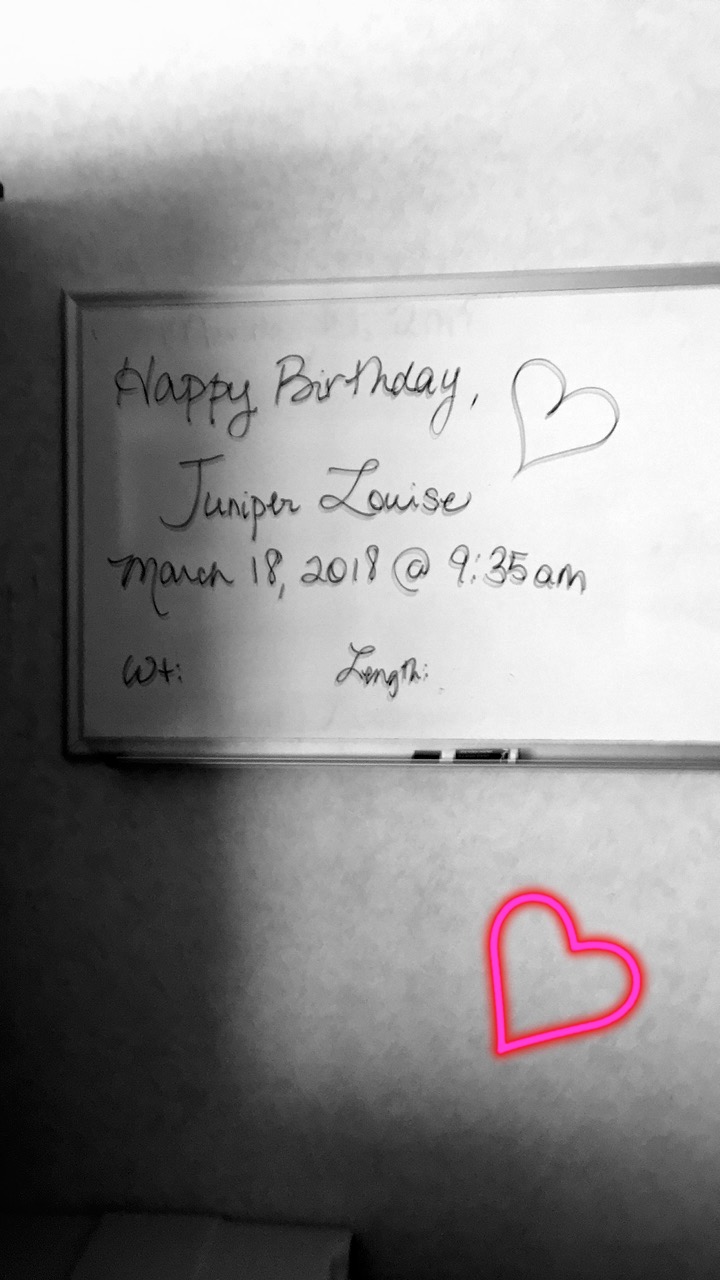 Happy Birthday,
Juniper Louise
March 18, 2018 @ 9:35am
Wt: Length: